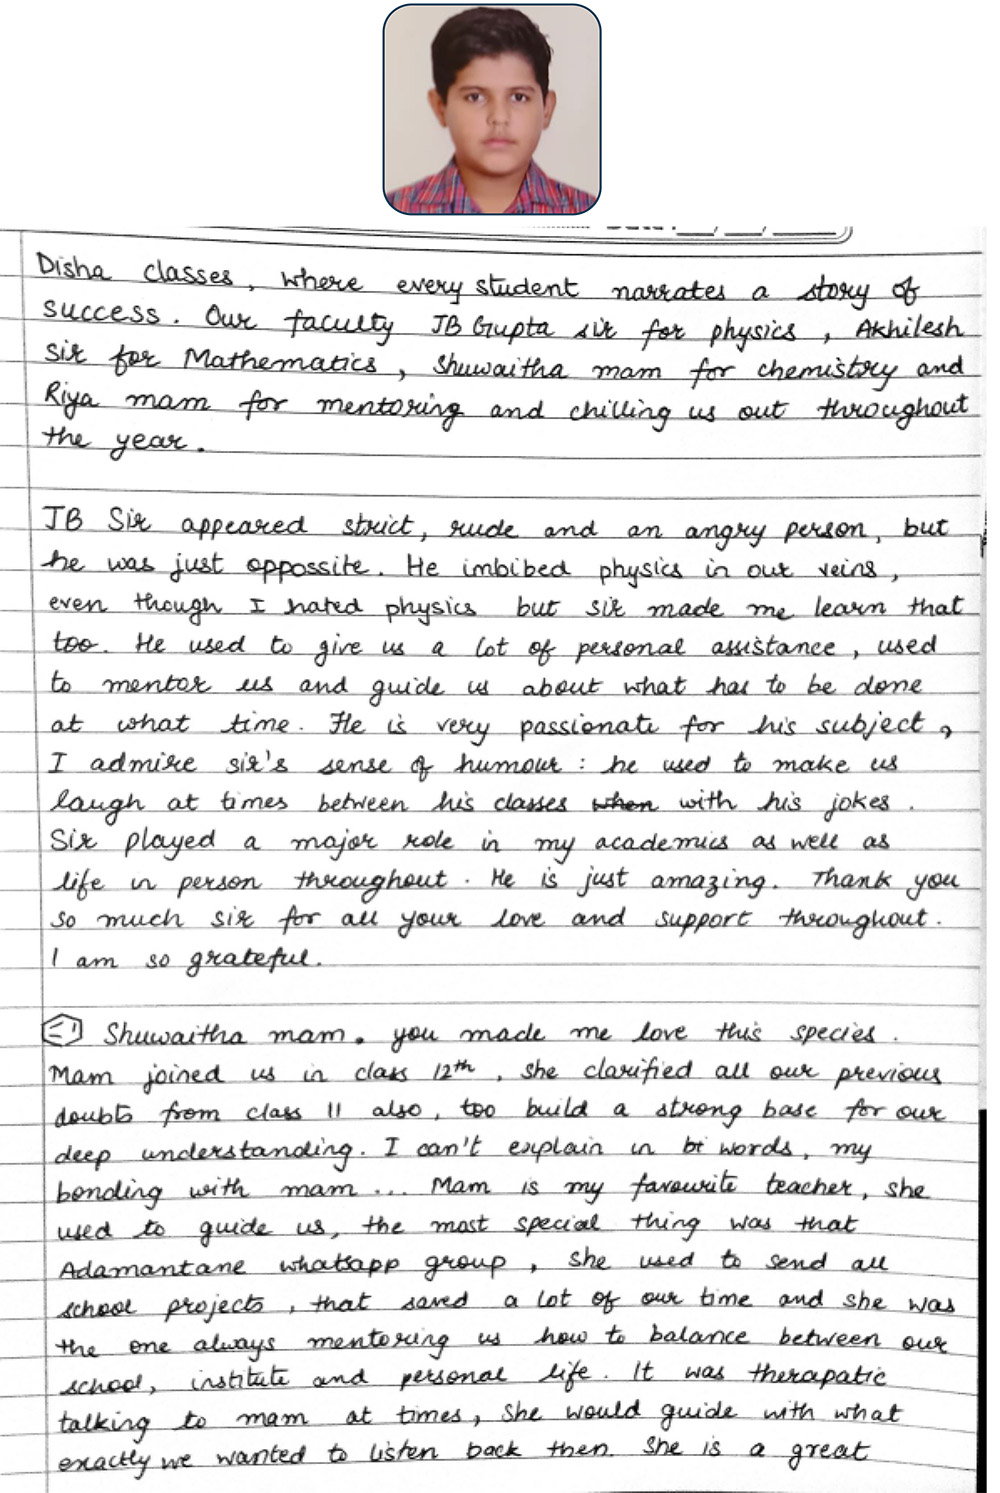 Disha classes, where every student narrates a story of
success. Our faculty JB Gupta sir for physics, Akhilesh
Sir for Mathematics, Shuwaitha mam for chemistry and
Riya mam for mentoring and chilling us out throughout
the year.
JB Sir appeared strict, rude and an angry person, but
he was just oppossite. He imbibed physics in our veins,
even though I hated physics but sir made me learn that
too. He used to give us a lot of personal assistance, used
to mentor us and guide us about what has to be done
at what time. He is very passionate for his subject,
I admire sir's sense of humour : he used to make us
laugh at times between his classes when with his jokes.
Sir played a major role in my academics as well as
life in person throughout. He is just amazing. Thank you
so much sir for all your love and support throughout.
I am so grateful.
Shuwaitha mam. you made me love this species.
Mam joined us in class 12th, she clarified all our previous
doubts from class 11 also, too build a strong base for our
deep understanding. I can't explain in words, my
bonding with mam... Mam is my favourite teacher, she
used to guide us, the most special thing was that
Adamantane whatsapp group, she used to send all
school projects, that saved a lot of our time and she was
the one always mentoring us how to balance between our
school, institute and personal life. It was therapatic
talking to mam at times, she would guide with what
exactly we wanted to listen back then. She is a great